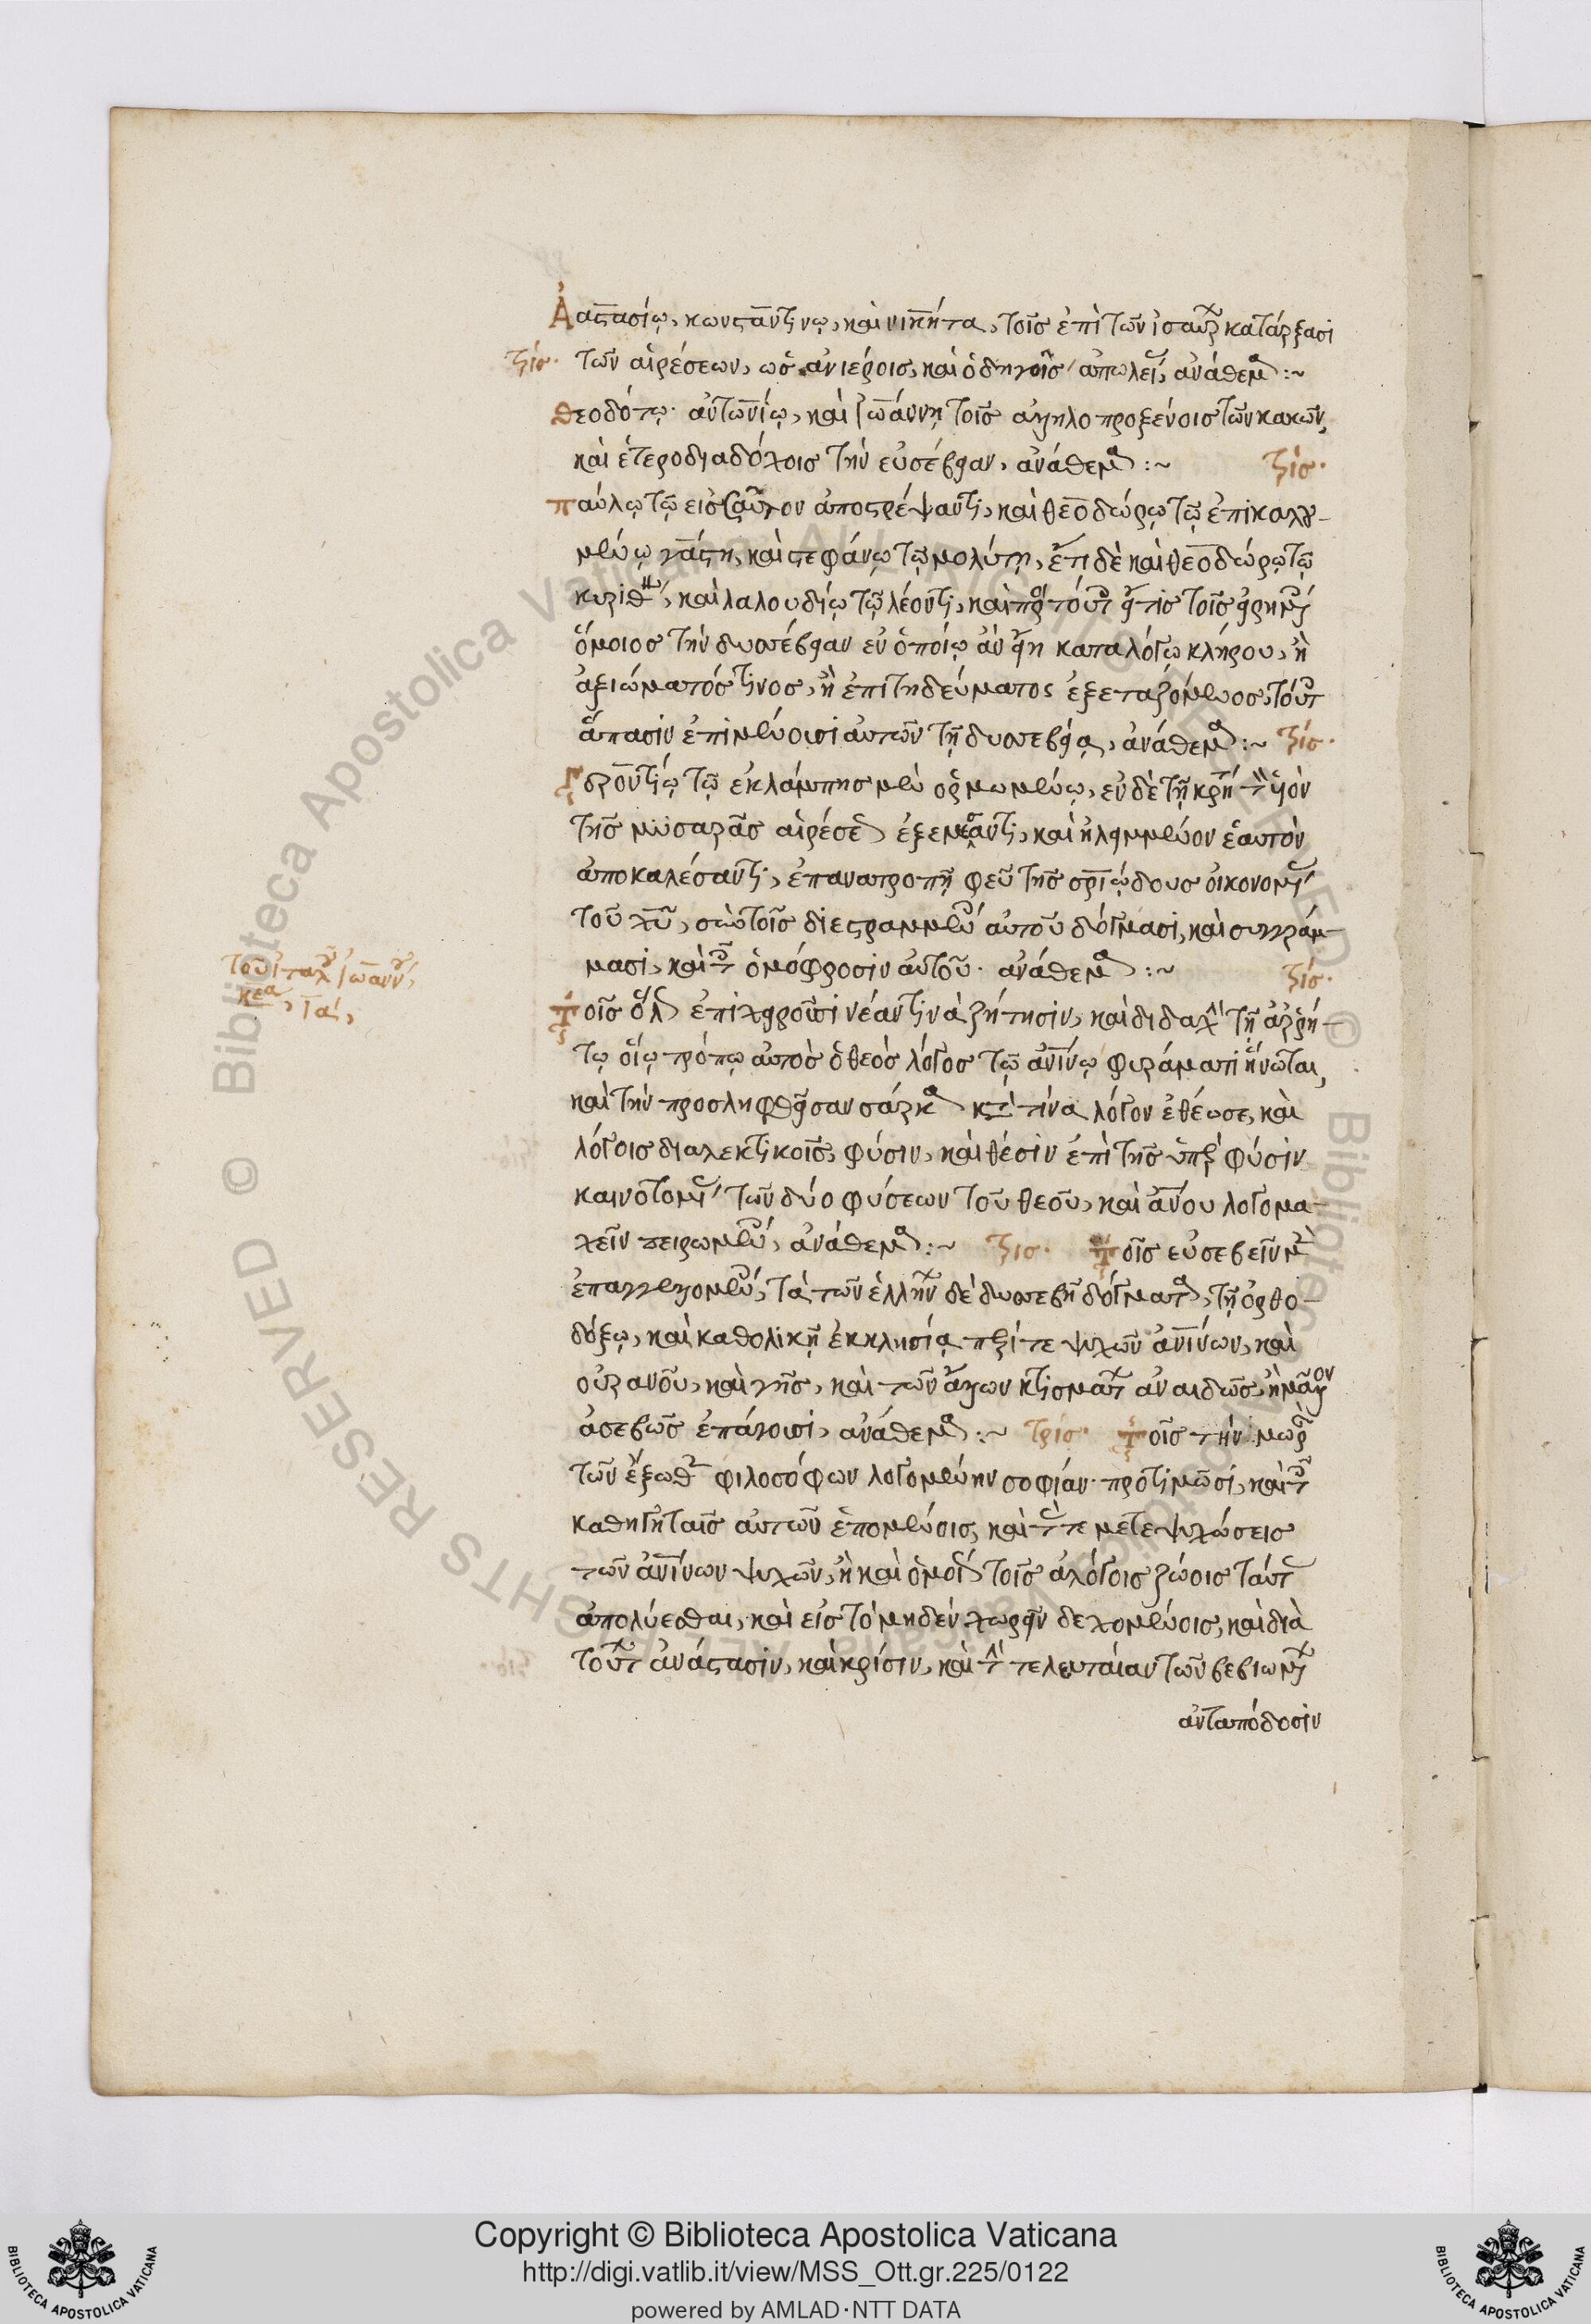 Ἀαστασίῳ, κωνσταντίνῳ, καὶ νικήτα, τοῖς ἐπὶ τῶν ἰσαύρ κατάρξασι
τρίς· τῶν αἱρέσεων, ὡς ἀνιέροις, καὶ ὁδηγοῖς ἀπωλεί, ἀνάθεμα :~
θεοδότῳ· ἀντωνίῳ, καὶ ἰωάννῃ τοῖς ἀλληλοπροξένοις τῶν κακῶν,
καὶ ἑτεροδιαδόχοις τὴν εὐσέβειαν, ἀνάθεμα :~ τρίς·
παύλῳ τῷ εἰς σαῦλον ἀποστρέψαντι, καὶ θεοδώρῳ τῷ ἐπικαλου-
μένῳ γάστη, καὶ στεφάνῳ τῷ μολύτῃ, ἔτι δὲ καὶ θεοδώρῳ τῷ
κριθ, καὶ λαλουδίῳ τῷ λέοντι, καὶ πρὸς τούτ εἴ τις τοῖς εἰρημ
ὅμοιος τὴν δυσσέβειαν ἐν ὁποίῳ ἂν εἴη καταλόγω κλήρου, ἢ
ἀξιώματός τινος, ἢ ἐπιτηδεύματος ἐξεταζόμενος, τούτ
ἅπασιν ἐπιμένουσι αὐτῶν τῇ δυσσεβείᾳ, ἀνάθεμα :~ τρίς·
Γεροντίῳ τῷ ἐκ λάμπης μὲν ὁρμωμένῳ, ἐν δὲ τῇ κρήτ τὸν ἰὸν
τῆς μυσαρᾶς αἱρέσε ἐξεμέσαντι, καὶ ἠλειμμένον ἑαυτὸν
ἀποκαλέσαντι, ἐπανατροπῇ φεῦ τῆς σριώδους οἰκονομί
τοῦ χυ, σὺν τοῖς διεστραμμέν αὐτοῦ δόγμασι, καὶ συγγράμ-
μασι, καὶ τ ὁμόφροσιν αὐτοῦ· ἀνάθεμα :~ τρίς·
τοῦ ἰταλ ἰωάνν,
κεα, ια,
Τοῖς ὅλ ἐπιχειροῦσι νέαν τινὰ ζήτησιν, καὶ διδαχ τῇ ἀρρή-
τῳ οἵῳ τρόπῳ αὐτὸς ὁ θεὸς λόγος τῷ ἀνίνῳ φυράματι ἥνωται,
καὶ τὴν προσληφθεῖσαν σάρκα κατὰ τίνα λόγον ἐθέωσε, καὶ
λόγοις διαλεκτικοῖς, φύσιν, καὶ θέσιν ἐπὶ τῆς ὑπὲρ φύσιν
καινοτομί τῶν δύο φύσεων τοῦ θεοῦ, καὶ ἀνου λογομα-
χεῖν πειρωμέν, ἀνάθεμα :~ τρισ· Τοῖς εὐσεβεῖν μ
ἐπαγγελλομέν, τὰ τῶν ἑλλήν δὲ δυσσεβῆ δόγματα, τῇ ὀρθο-
δόξῳ, καὶ καθολικῇ ἐκκλησίᾳ περί τε ψυχῶν ἀνίνων, καὶ
οὐρανοῦ, καὶ γῆς, καὶ τῶν ἄλλων κτισμάτ ἀναιδῶς, ἢ μᾶλλον
ἀσεβῶς ἐπάγουσι, ἀνάθεμα :~ τρίς· Τοῖς τὴν μωρ
τῶν ἔξωθ φιλοσόφων λεγομένην σοφίαν προτιμῶσι, καὶ τ
καθηγηταῖς αὐτῶν ἑπομένοις, καὶ τ τε μετεμψυχώσεις
τῶν ἀνίνων ψυχῶν, ἢ καὶ ὁμοί τοῖς ἀλόγοις ζώοις ταύτ
ἀπολύεσθαι, καὶ εἰς τὸ μηδὲν χωρεῖν δεχομένοις, καὶ διὰ
τοῦτ ἀνάστασιν, καὶ κρίσιν, καὶ τ τελευταίαν τῶν βεβιωμ
ἀνταπόδοσιν
Copyright © Biblioteca Apostolica Vaticana
http://digi.vatlib.it/view/MSS_Ott.gr.225/0122
powered by AMLAD·NTT DATA